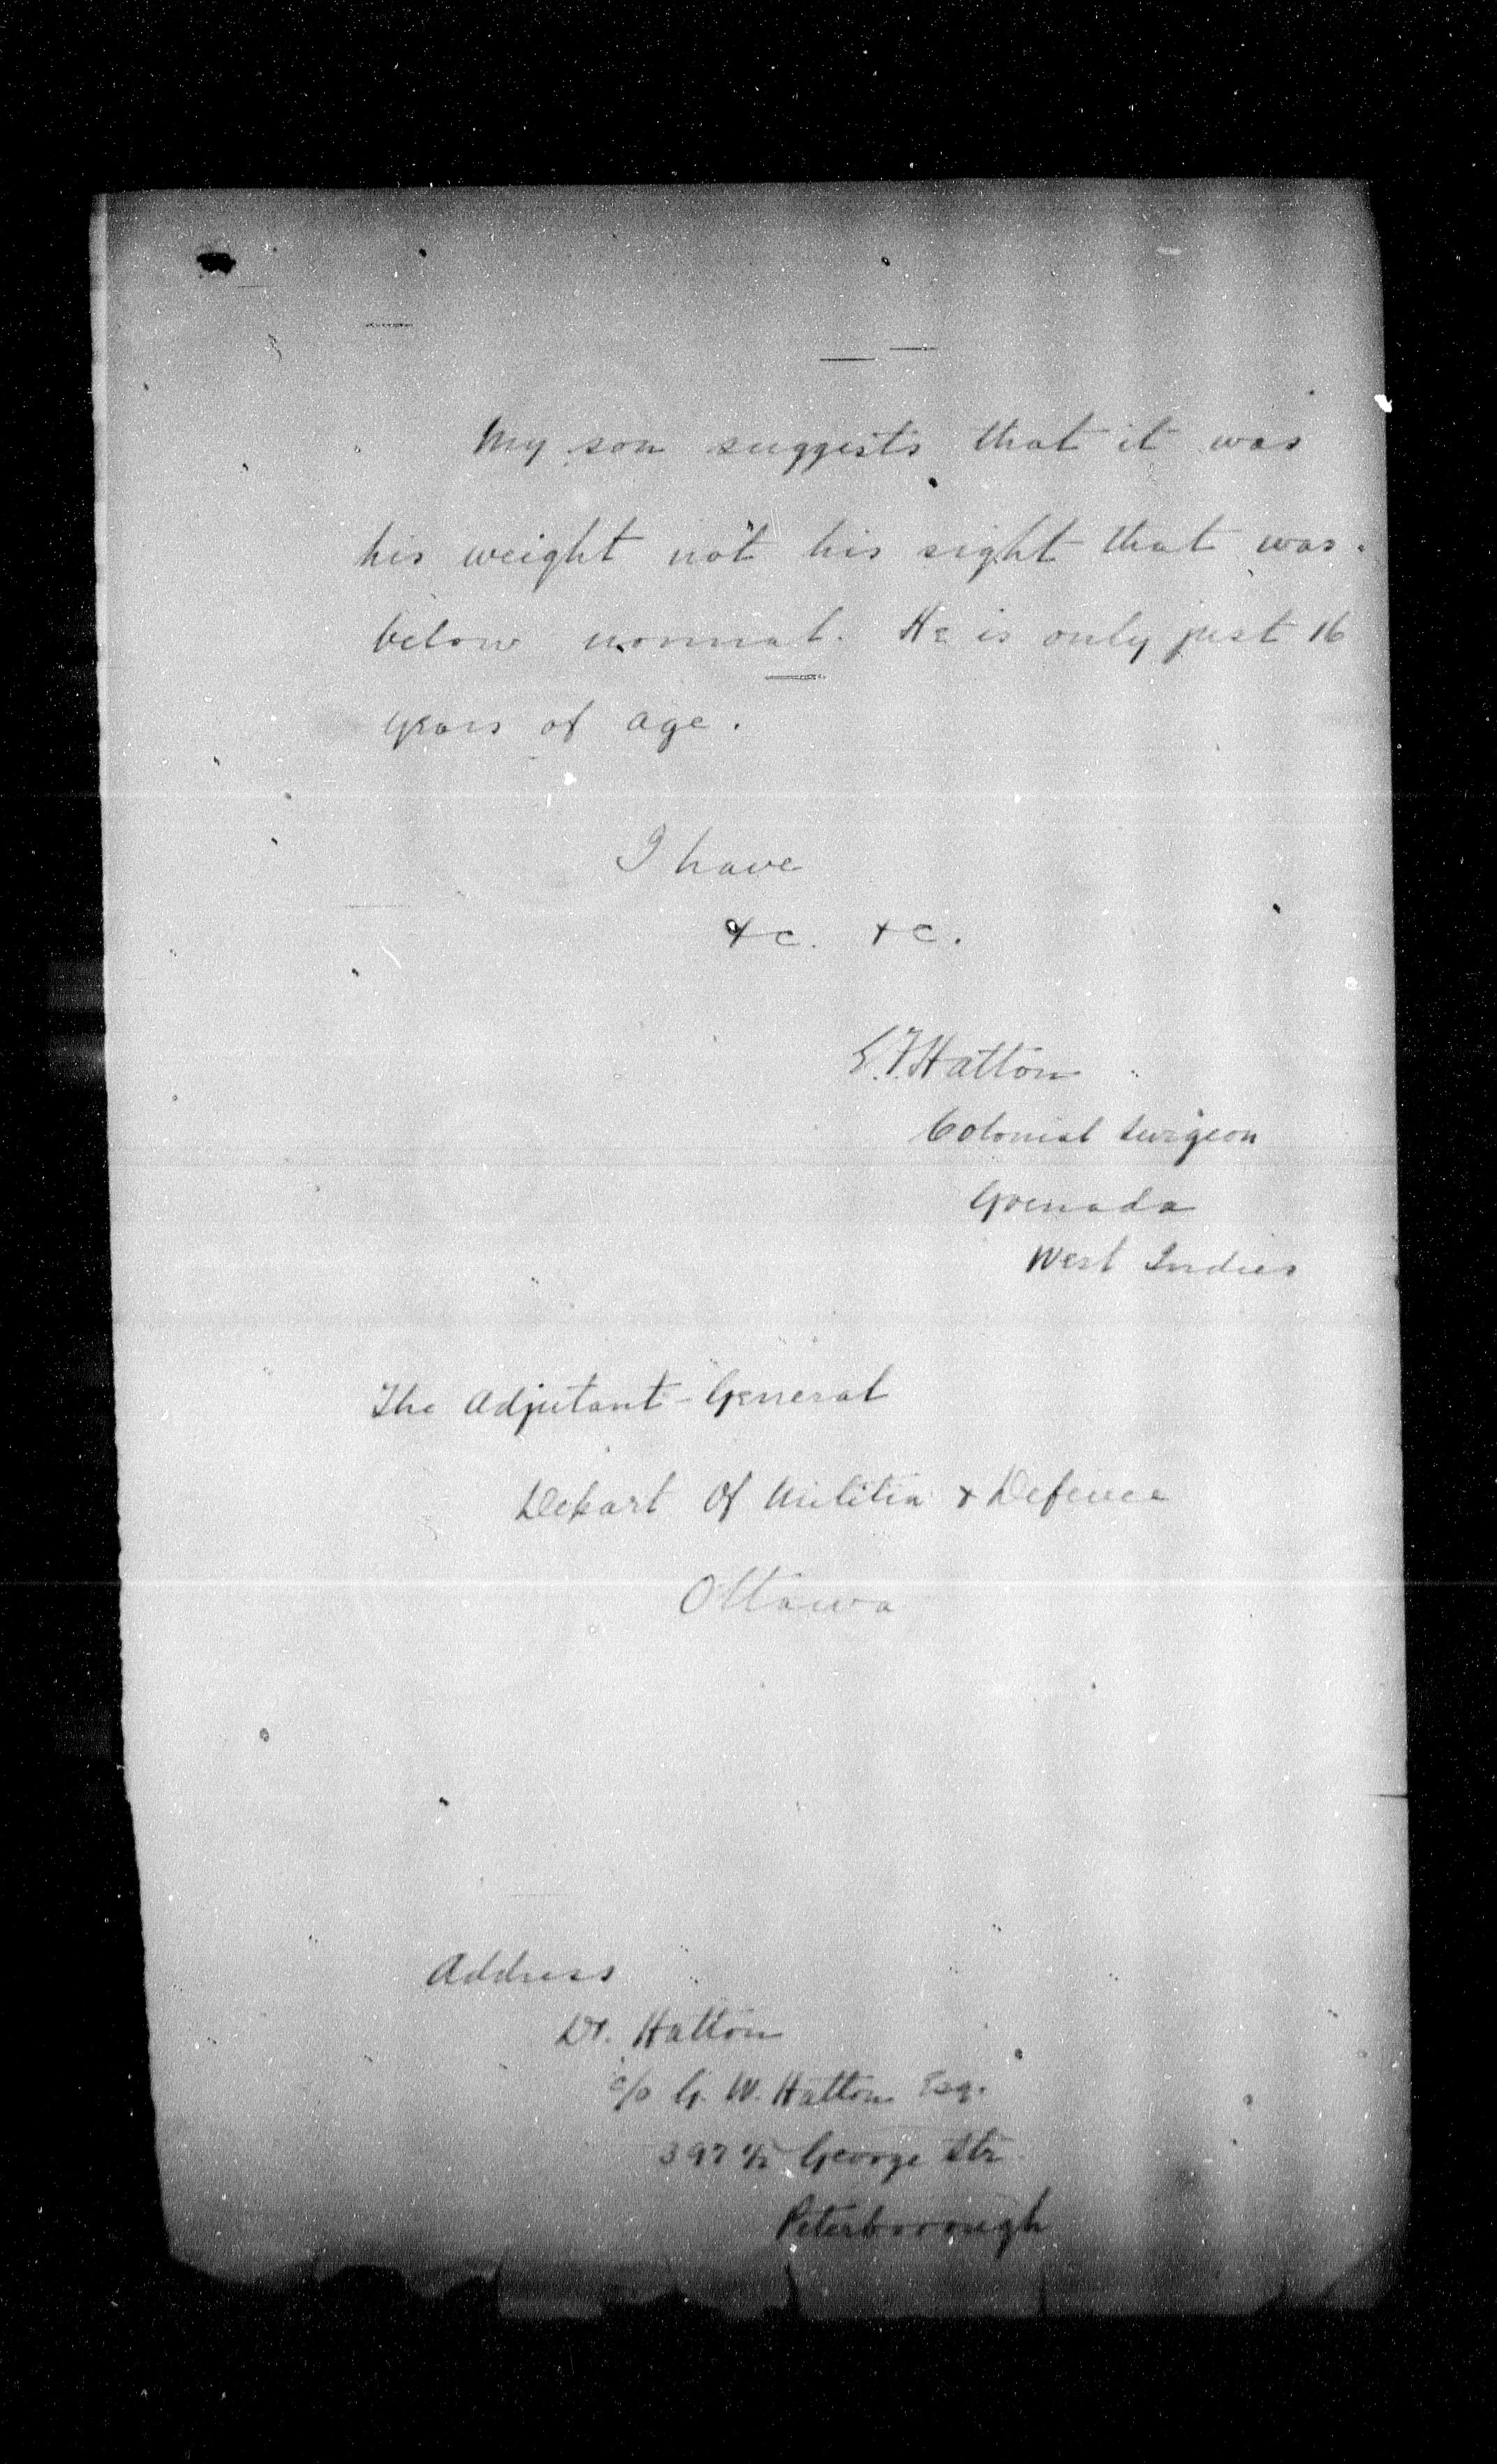 My son suggests that it was
his weight not his sight that was
below normal. He is only just 16
years of age.
I have
&c. &c.
E.F. Hatton
Colonial Surgeon
Grenada
West Indies
The Adjutant-General
Depart of Militia & Defence
Ottawa
Address
Dr. Hatton
c/o G. W. Hatton Esq.
397 1/2 George Str.
Peterborough